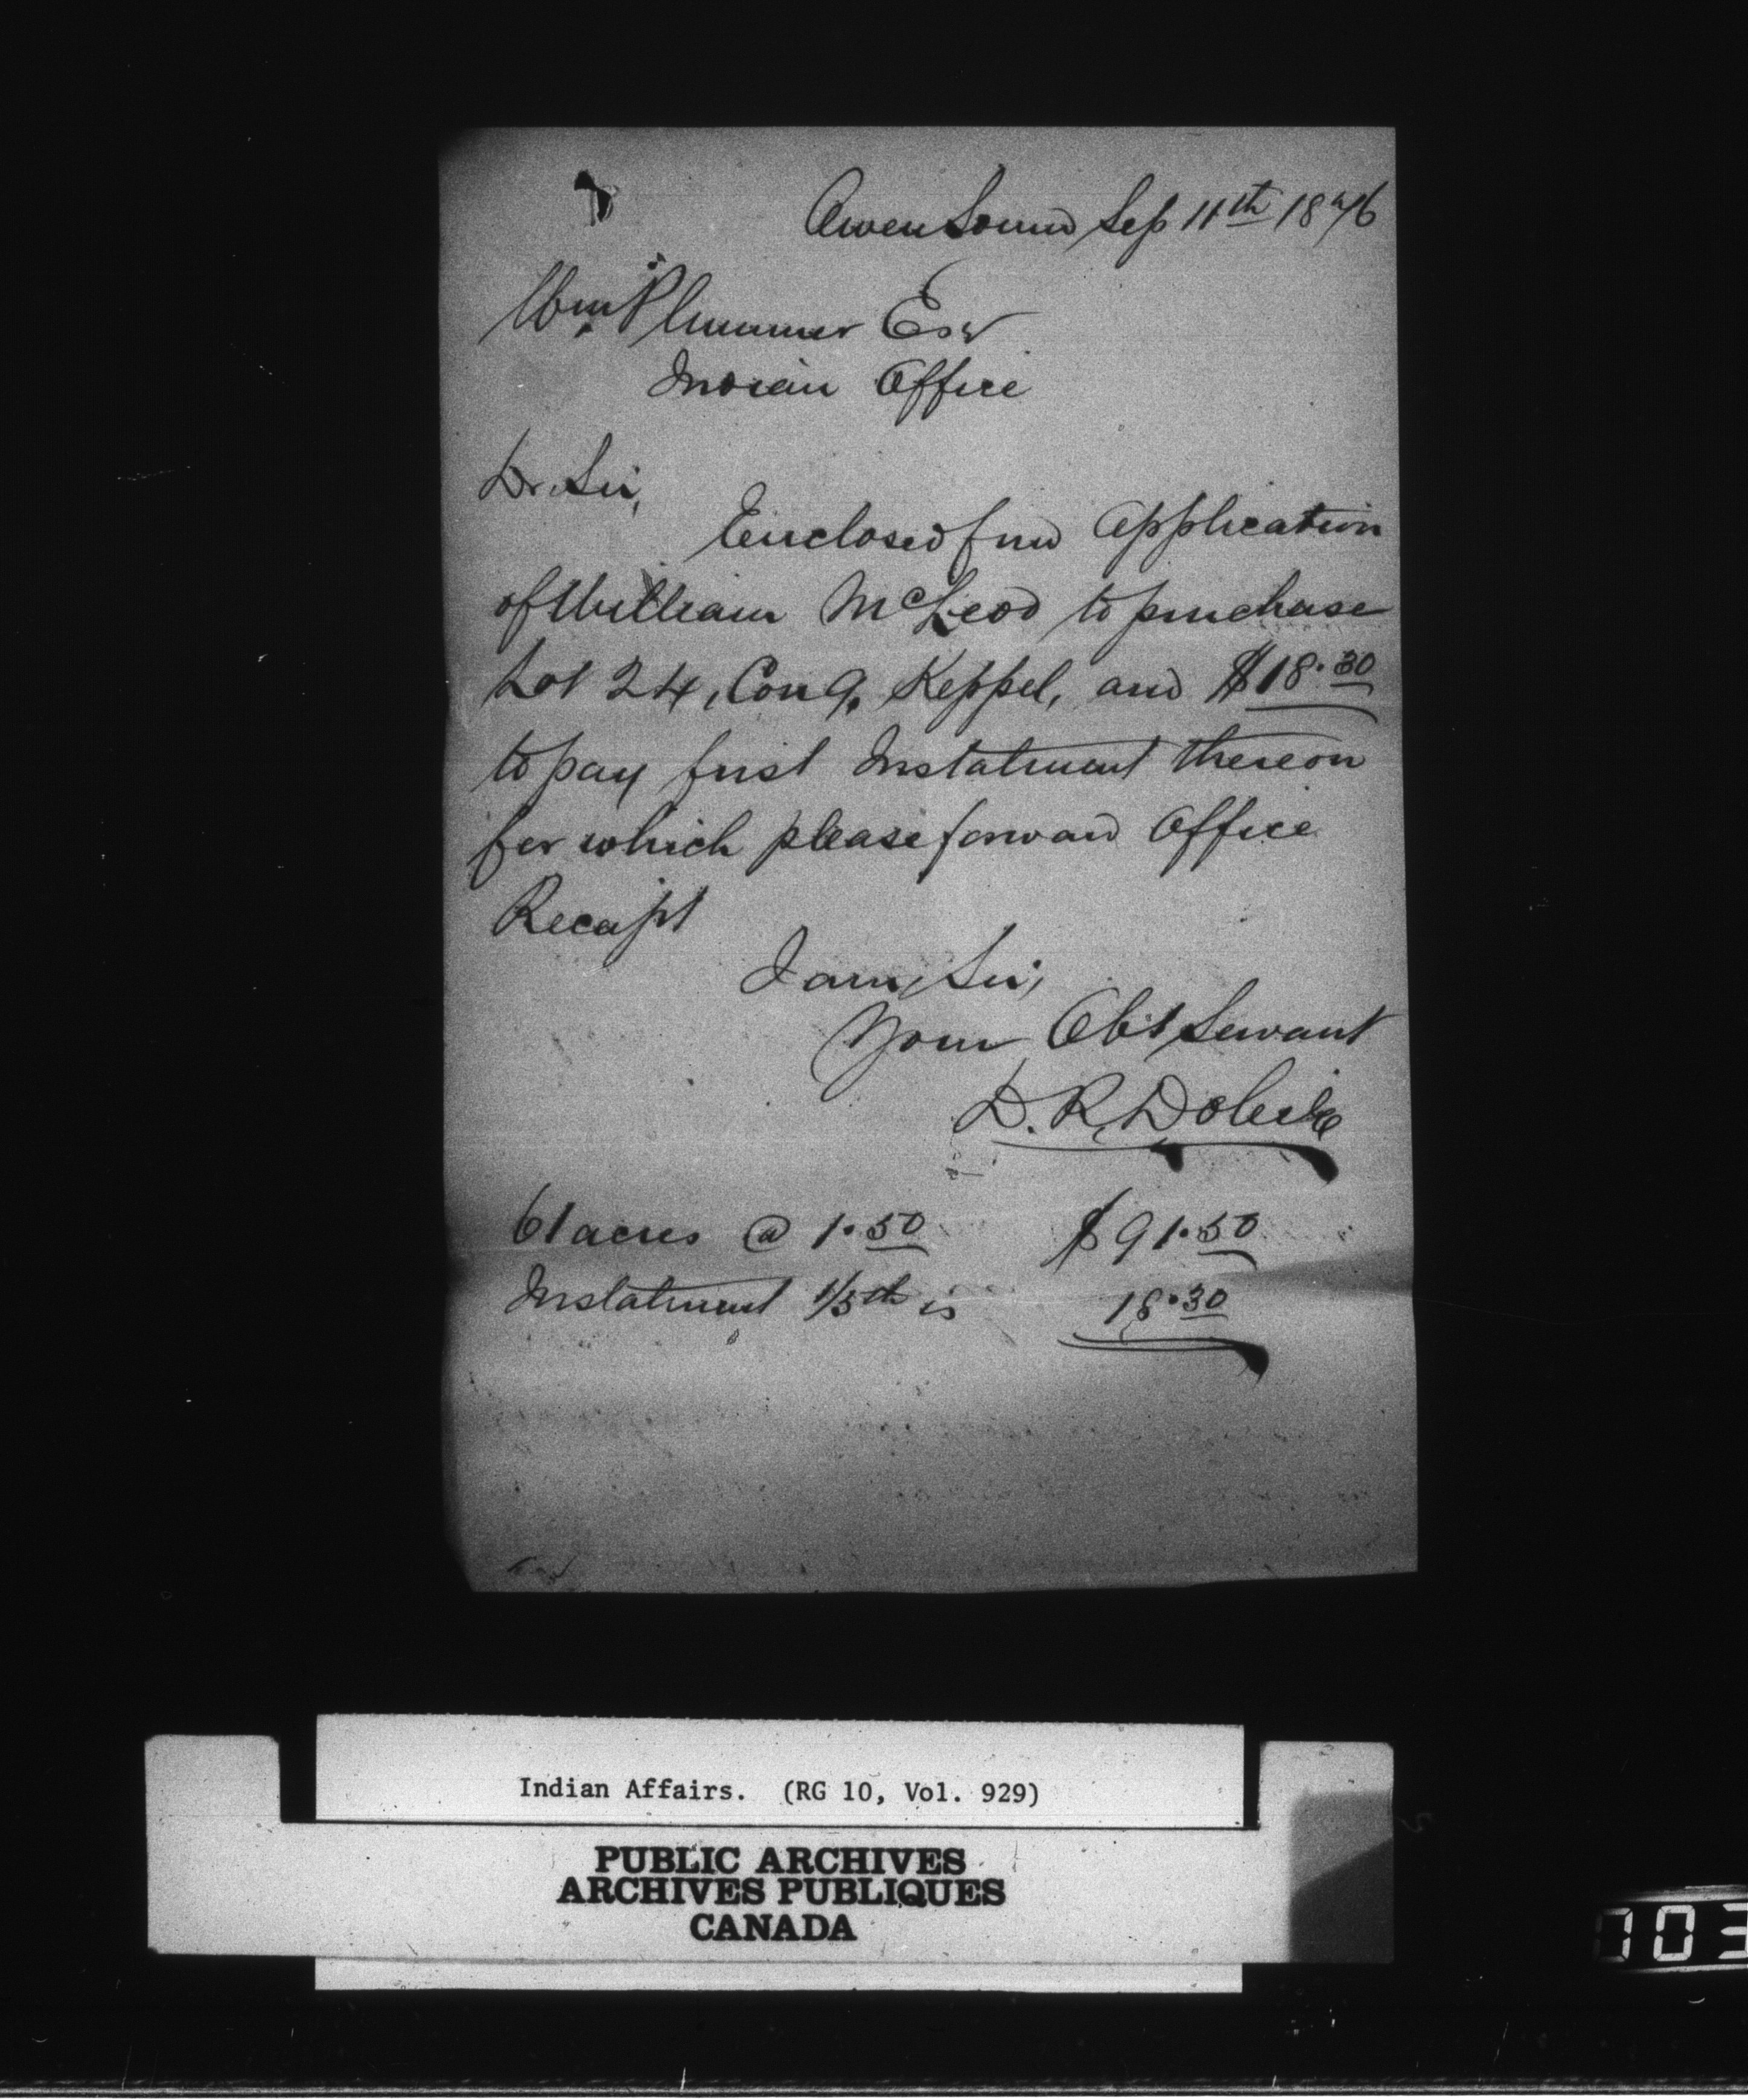 Owen Sound Sep 11th 1876
Wm Plummer Esq
Indian Office
Dr. Sir,
Enclosed find Application
of William McLeod to purchase
Lot 24, Con 9, Keppel, and $18.30
to pay first Instalment thereon
for which please forward Office
Receipt
I am, Sir,
Your Obt Servant
D. R. Dobie
61 acres @ 1.50 $91.50
Instalment 1/5th is 18.30
Indian Affairs. (RG 10, Vol. 929)
PUBLIC ARCHIVES
ARCHIVES PUBLIQUES
CANADA
703